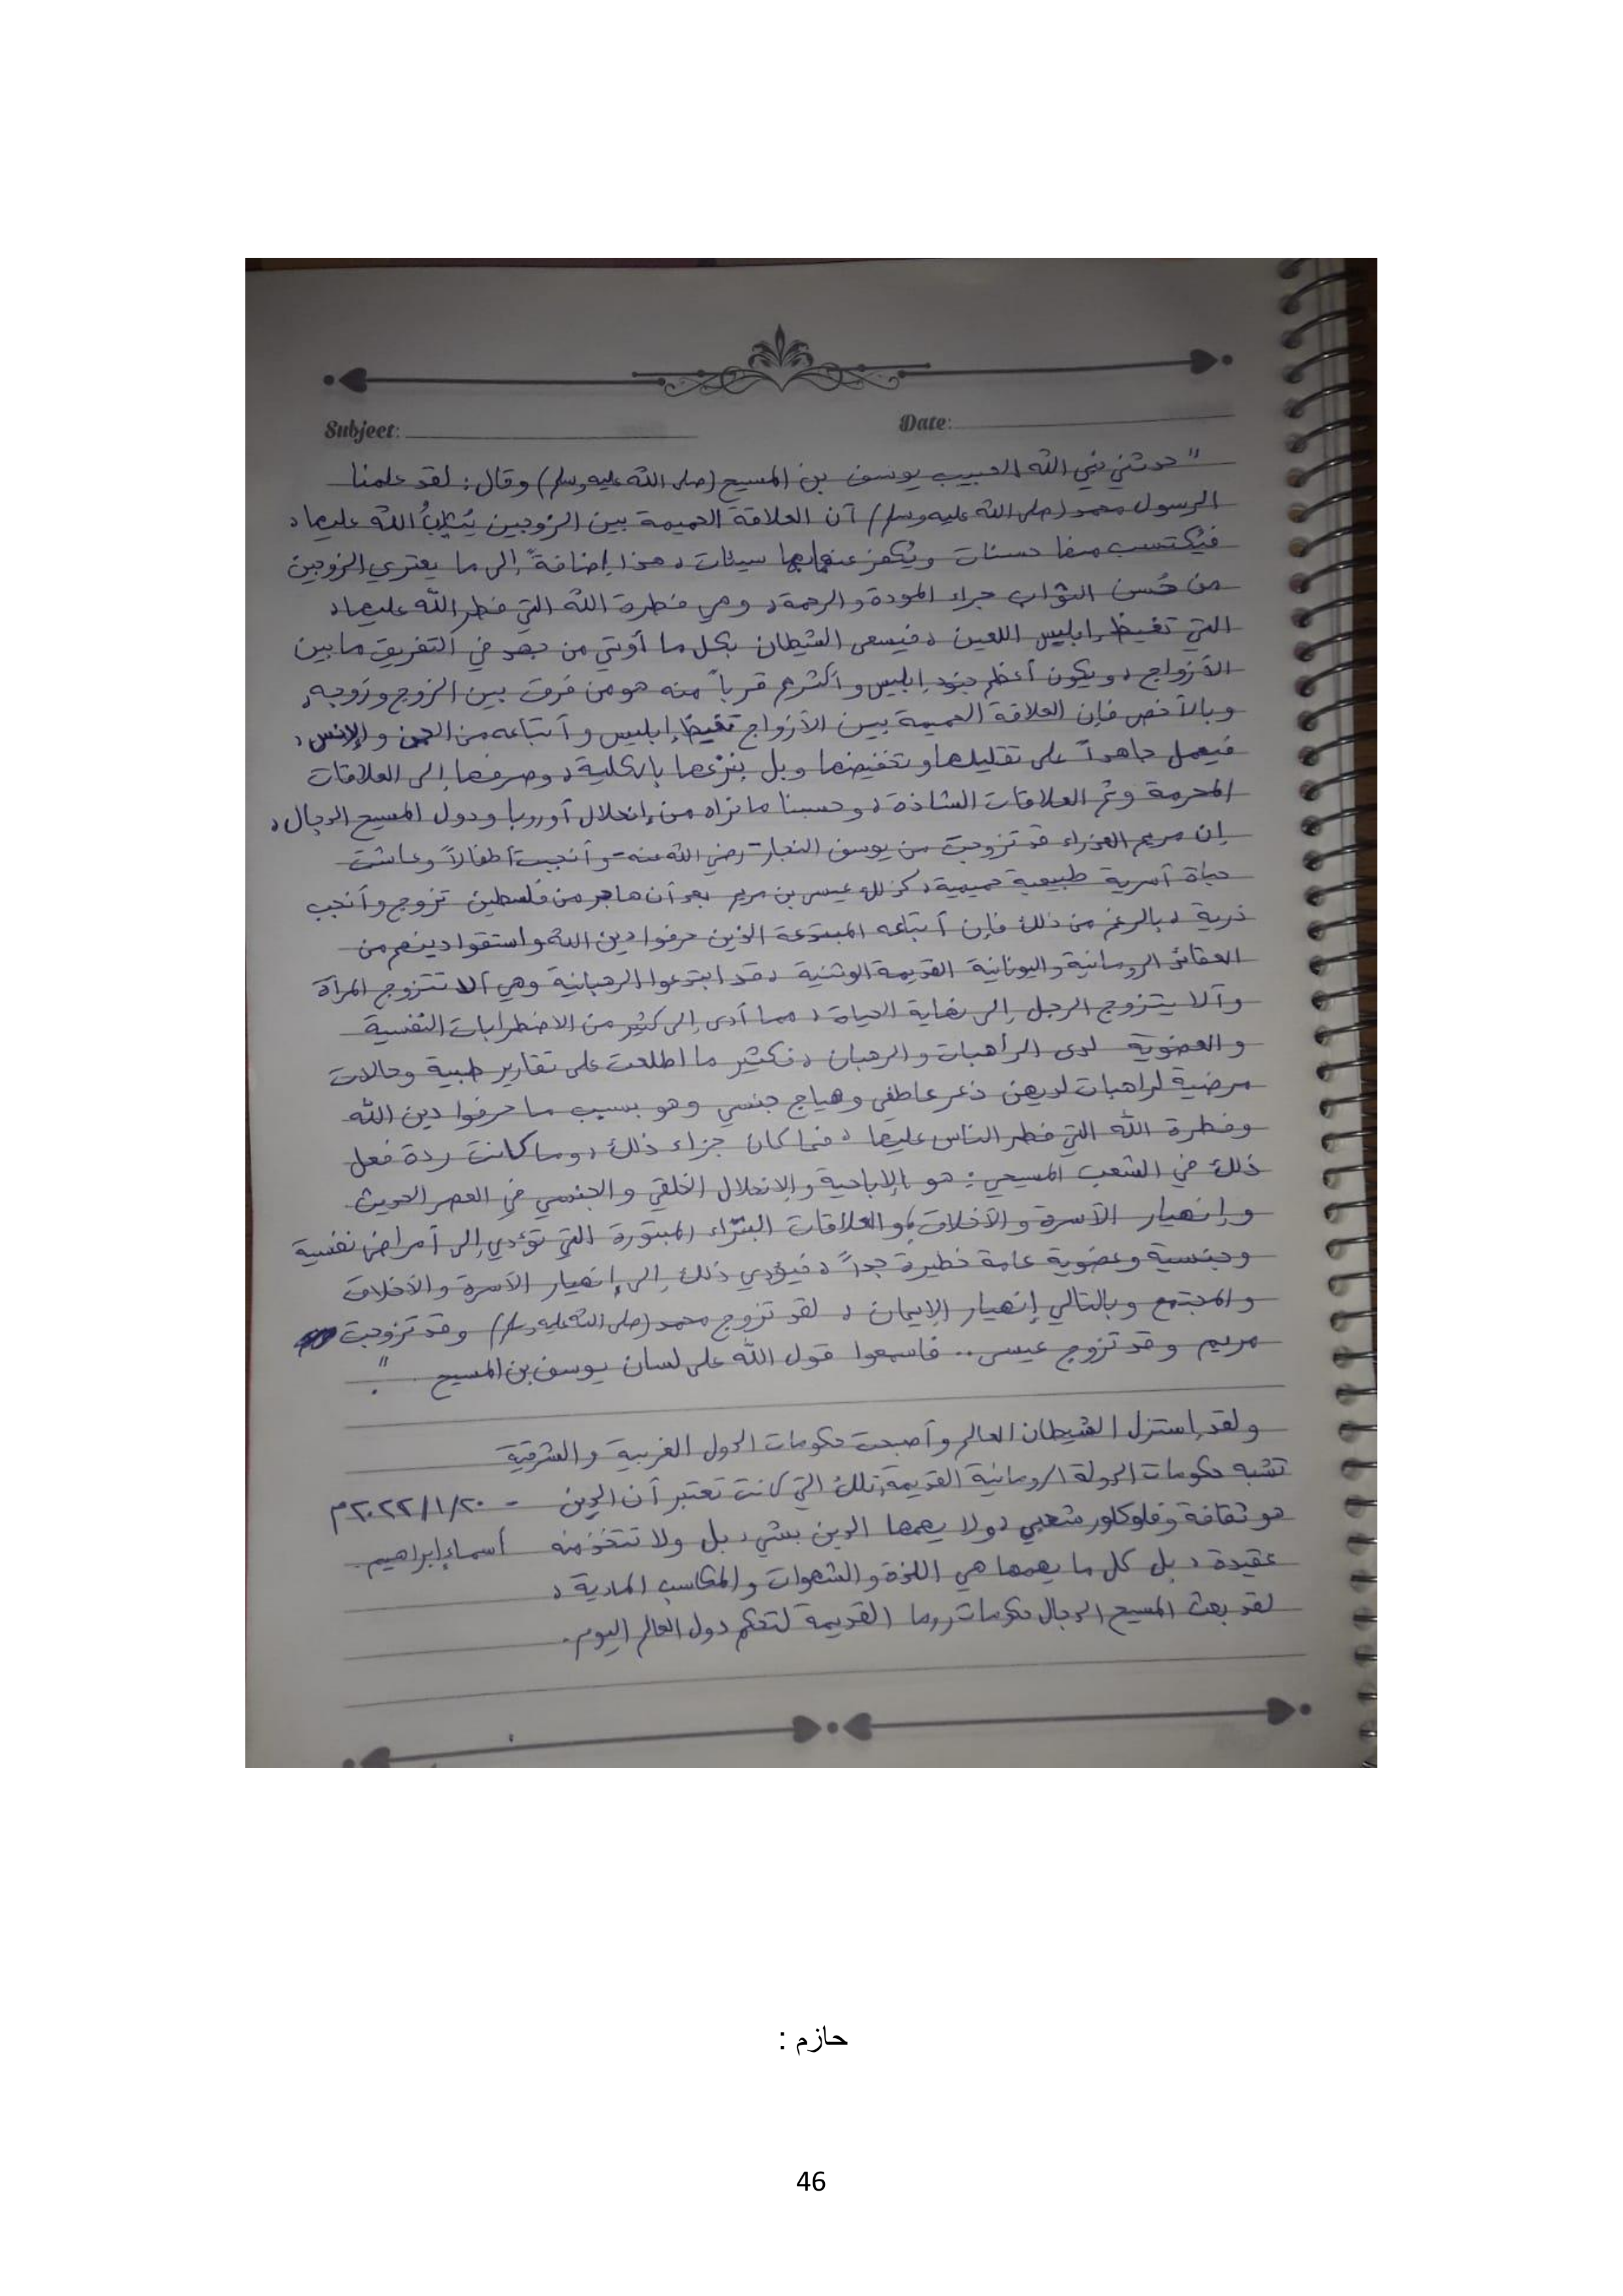 Subject:
Date:
" حدثني نبي الله الحبيب يوسف بن المسيح (صلى الله عليه وسلم) وقال : لقد علمنا
الرسول محمد (صلى الله عليه وسلم) أن العلاقة الحميمة بين الزوجين يُثيبُ الله عليها ،
فيُكتسب منها حسنات ويُكفر عنهما بها سيئات ، هذا إضافةً إلى ما يعتري الزوجين
من حُسن الثواب جراء المودة والرحمة ، وهي فطرة الله التي فطر الله عليها ،
التي تغيظ إبليس اللعين ، فيسعى الشيطان بكل ما أوتي من جهد في التفريق ما بين
الأزواج ، و يكون أعظم جنود إبليس و أكثرهم قرباً منه هو من فرق بين الزوج وزوجه ،
و بالأخص فإن العلاقة الحميمة بين الأزواج تغيظ إبليس و أتباعه من الجن و الإنس ،
فيعمل جاهداً على تقليلها و تخفيضها و بل بنزعها بالكلية ، و صرفها إلى العلاقات
المحرمة و ثم العلاقات الشاذة ، و حسبنا ما نراه من إنحلال أوروبا و دول المسيح الدجال ،
إن مريم العذراء قد تزوجت من يوسف النجار - رضي الله عنه - و أنجبت أطفالاً و عاشت
حياة أسرية طبيعية حميمية ، كذلك عيسى بن مريم بعد أن هاجر من فلسطين تزوج و أنجب
ذرية ، بالرغم من ذلك فإن أتباعه المبتدعة الذين حرفوا دين الله و استقوا دينهم من
العقائد الرومانية و اليونانية القديمة الوثنية ، قد ابتدعوا الرهبانية وهي ألا تتزوج المرأة
و ألا يتزوج الرجل إلى نهاية الحياة ، مما أدى إلى كثير من الاضطرابات النفسية
و العضوية لدى الرأهبات و الرهبان ، فكثير ما اطلعت على تقارير طبية و حالات
مرضية لراهبات لديهن ذعر عاطفي و هياج جنسي وهو بسبب ما حرفوا دين الله
و فطرة الله التي فطر الناس عليها ، فما كان جزاء ذلك ، و ما كانت ردة فعل
ذلك في الشعب المسيحي : هو الإباحية و الإنحلال الخلقي و الجنسي في العصر الحديث
و إنهيار الأسرة و الأخلاق ، و العلاقات البتراء المبتورة التي تؤدي إلى أمراض نفسية
و جنسية و عضوية عامة خطيرة جداً ، فيؤدي ذلك إلى إنهيار الأسرة و الأخلاق
و المجتمع و بالتالي إنهيار الإيمان ، لقد تزوج محمد (صلى الله عليه وسلم) و قد تزوجت
مريم و قد تزوج عيسى .. فاسمعوا قول الله على لسان يوسف بن المسيح . "
و لقد إستزل الشيطان العالم و أصبحت حكومات الدول الغربية و الشرقية
تشبه حكومات الدولة الرومانية القديمة تلك التي كانت تعتبر أن الدين - ٢٠٢٢/١/٢٠م
هو ثقافة و فلوكلور شعبي ، و لا يهمها الدين بشيء ، بل ولا تتخذ منه أسماء إبراهيم .
عقيدة ، بل كل ما يهمها هي اللذة و الشهوات و المكاسب المادية ،
لقد بعث المسيح الدجال حكومات روما القديمة لتحكم دول العالم اليوم .
حازم :
46